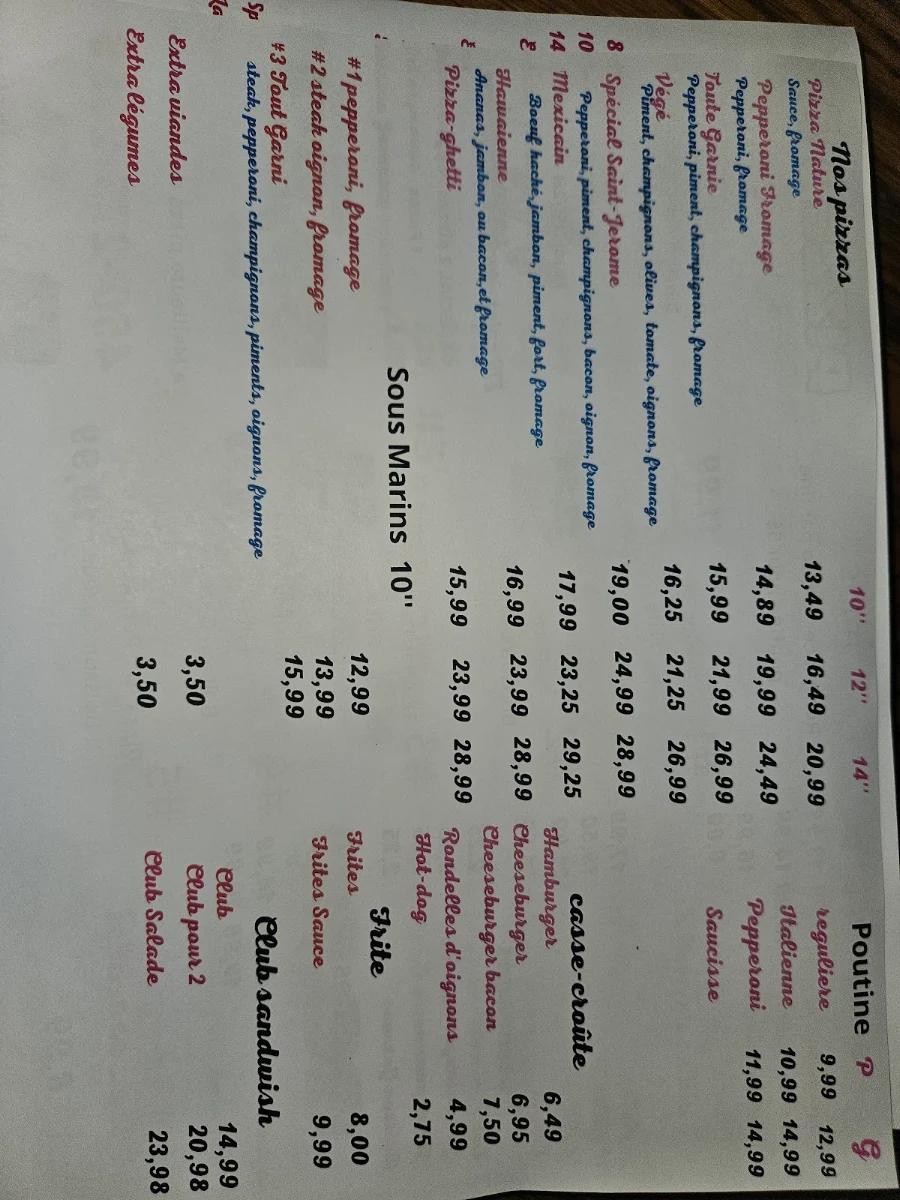 Nos pizzas 10" 12" 14"
Pizza Nature 13,49 16,49 20,99
Sauce, fromage
Pepperoni Fromage 14,89 19,99 24,49
Pepperoni, fromage
Toute Garnie 15,99 21,99 26,99
Pepperoni, piment, champignons, fromage
Végé 16,25 21,25 26,99
Piment, champignons, olives, tomate, oignons, fromage
8 Spécial Saint-Jerome 19,00 24,99 28,99
10 Pepperoni, piment, champignons, bacon, oignon, fromage
14 Mexicain 17,99 23,25 29,25
Boeuf haché, jambon, piment, fort, fromage
Hawaienne 16,99 23,99 28,99
Ananas, jambon, ou bacon, et fromage
Pizza-ghetti 15,99 23,99 28,99
Sous Marins 10"
#1 pepperoni, fromage 12,99
#2 steak oignon, fromage 13,99
#3 Tout Garni 15,99
steak, pepperoni, champignons, piments, oignons, fromage
Sp
Extra viandes 3,50
Extra légumes 3,50
Poutine P G
reguliere 9,99 12,99
Italienne 10,99 14,99
Pepperoni 11,99 14,99
Saucisse
casse-croûte
Hamburger 6,49
Cheeseburger 6,95
Cheeseburger bacon 7,50
Rondelles d'oignons 4,99
Hot-dog 2,75
Frite
Frites 8,00
Frites Sauce 9,99
Club sandwish
Club 14,99
Club pour 2 20,98
Club Salade 23,98